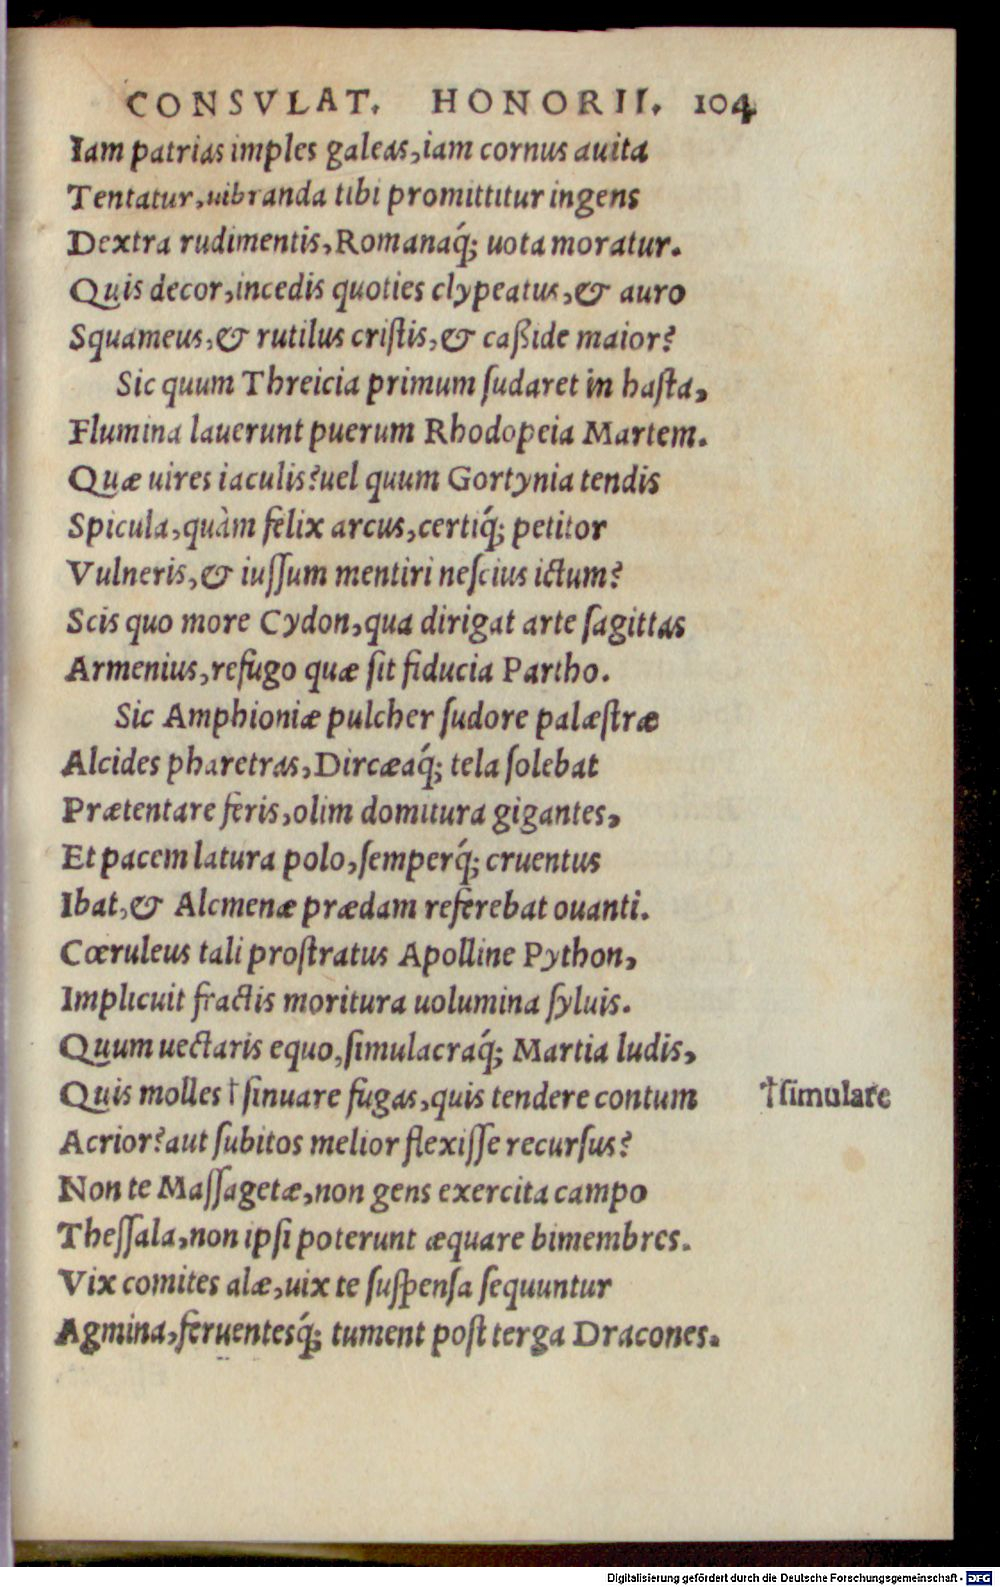 CONSVLAT. HONORII. 104
Iam patrias imples galeas, iam cornus auita
Tentatur, uibranda tibi promittitur ingens
Dextra rudimentis, Romanaq́; uota moratur.
Quis decor, incedis quoties clypeatus, & auro
Squameus, & rutilus criſtis, & caßide maior?
Sic quum Threicia primum ſudaret in haſta,
Flumina lauerunt puerum Rhodopeia Martem.
Quæ uires iaculis? uel quum Gortynia tendis
Spicula, quàm felix arcus, certiq́; petitor
Vulneris, & iuſſum mentiri neſcius ictum?
Scis quo more Cydon, qua dirigat arte ſagittas
Armenius, refugo quæ ſit fiducia Partho.
Sic Amphioniæ pulcher ſudore palæſtræ
Alcides pharetras, Dircæaq́; tela ſolebat
Prætentare feris, olim domitura gigantes,
Et pacem latura polo, ſemperq́; cruentus
Ibat, & Alcmenæ prædam referebat ouanti.
Cœruleus tali proſtratus Apolline Python,
Implicuit fractis moritura uolumina ſyluis.
Quum uectaris equo, ſimulacraq́; Martia ludis,
Quis molles † ſinuare fugas, quis tendere contum †ſimulare
Acrior? aut ſubitos melior flexiſſe recurſus?
Non te Maſſagetæ, non gens exercita campo
Theſſala, non ipſi poterunt æquare bimembres.
Vix comites alæ, uix te ſuſpenſa ſequuntur
Agmina, feruentesq́; tument poſt terga Dracones.
Digitalisierung gefördert durch die Deutsche Forschungsgemeinschaft - DFG